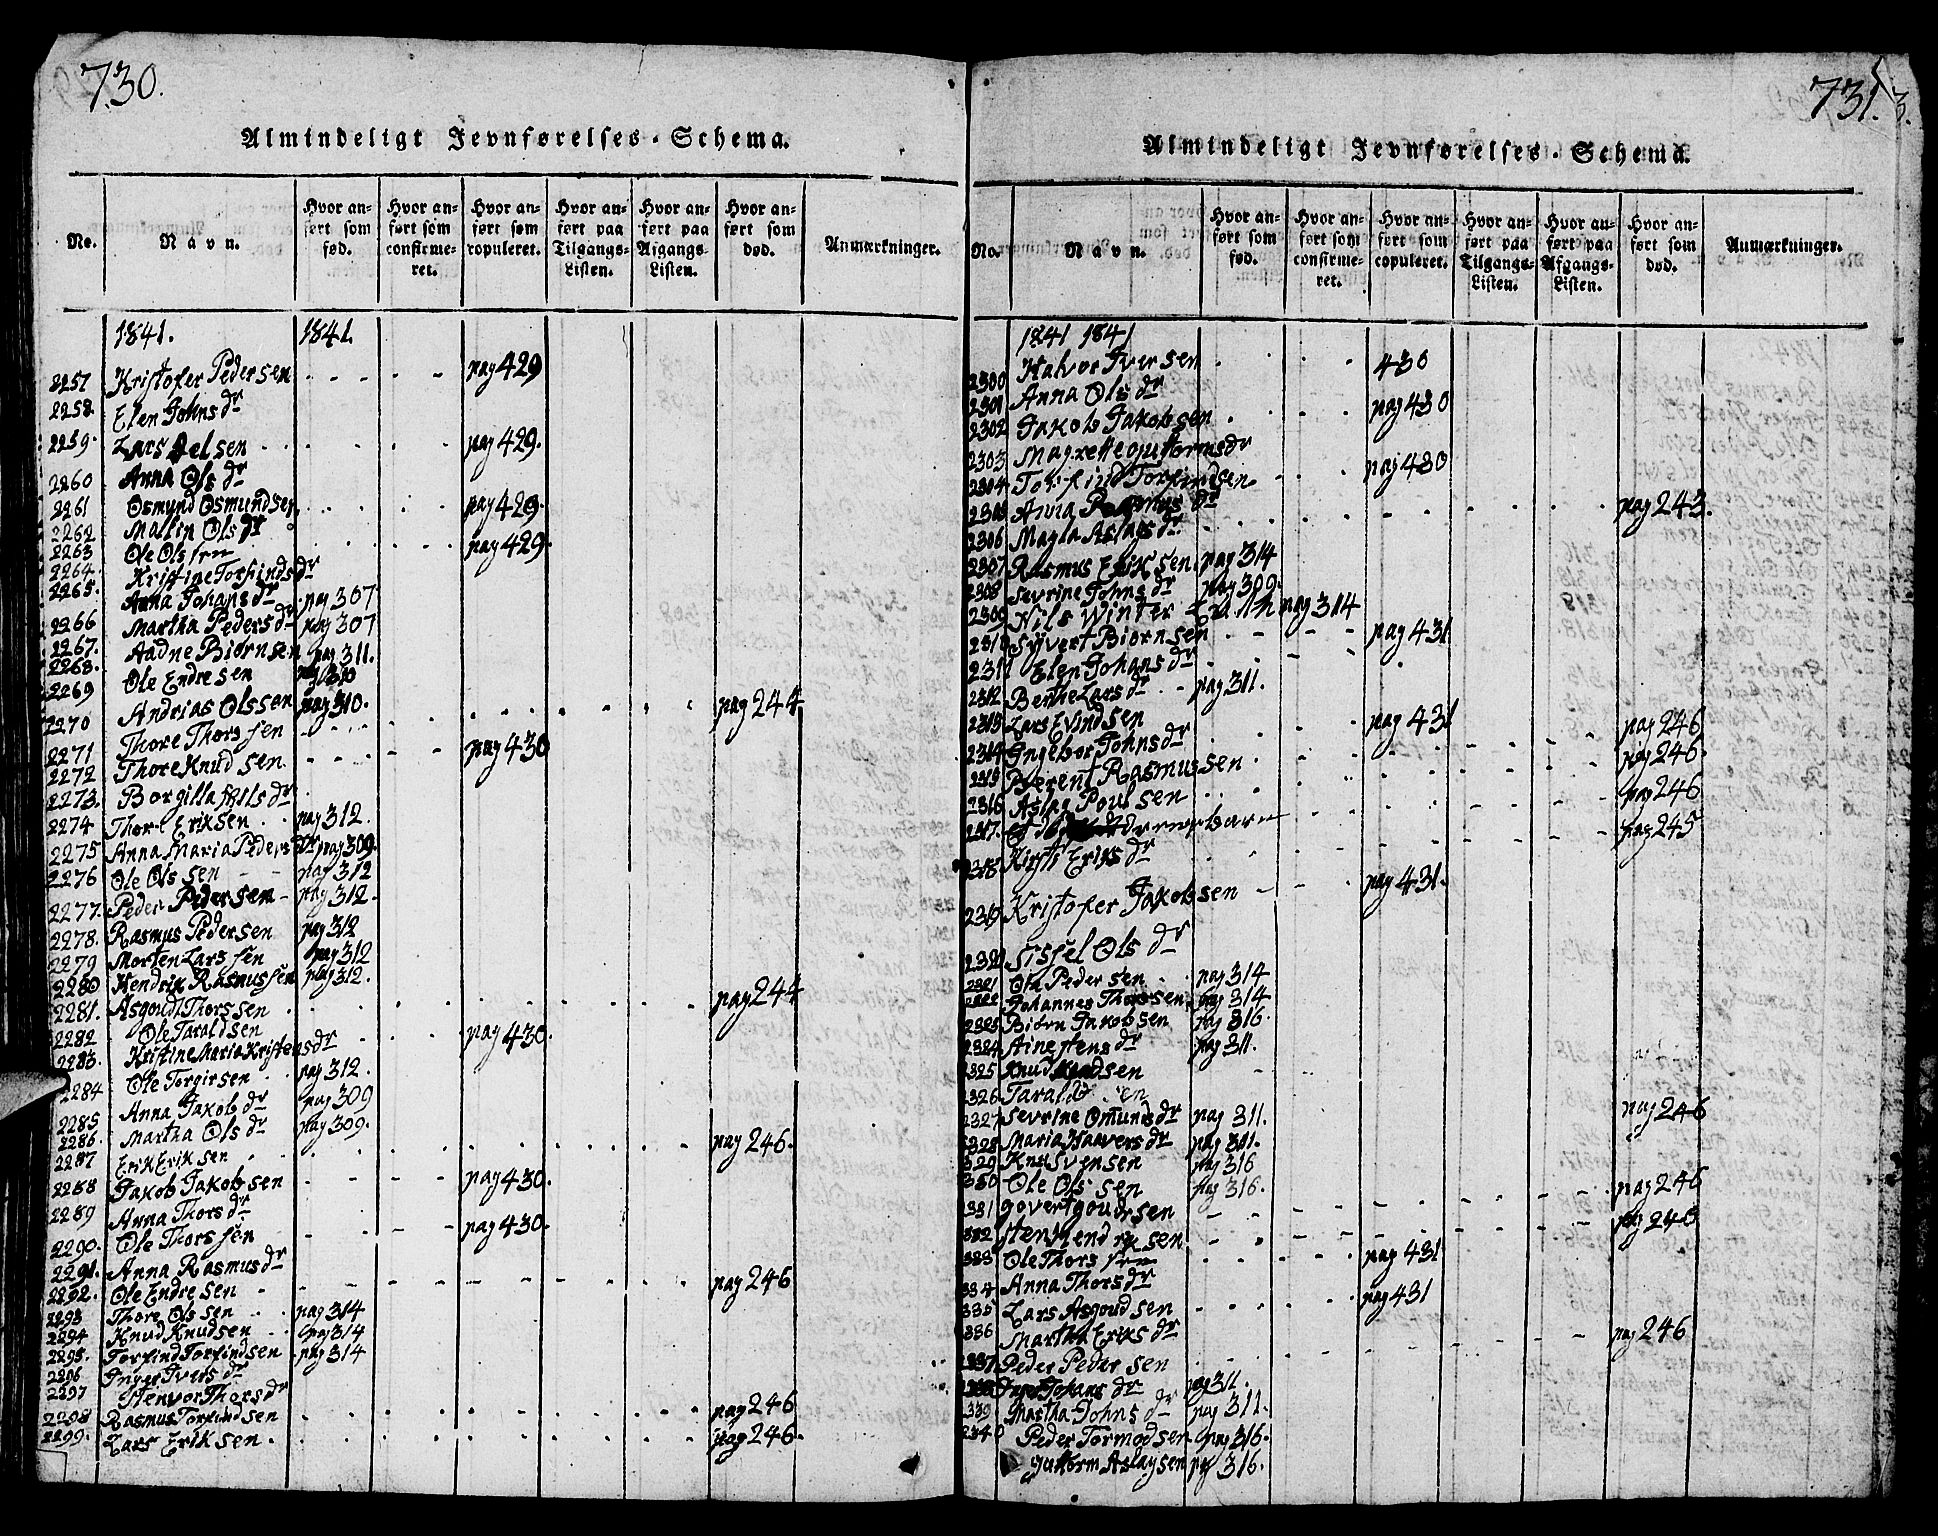 730.
Almindeligt Jevnførelses-Schema.
No. Navn. Hvor anført som fød. Hvor anført som confirmeret. Hvor anført som copuleret. Hvor anført paa Tilgangs-Listen. Hvor anført paa Afgangs-Listen. Hvor anført som død. Anmærkninger.
1841. 1841.
2257 Kristofer Pedersen pag 429
2258. Elen Johns dr
2259. Lars pag 429.
2260 Anna Ols dr
2261 Osmund Osmundsen pag 429.
2262 Mallin Ols dr
2263 Ole Olssen pag 429.
2264. Kristine Torfinds dr
2265. Anna Johans dr pag 307
2266 Martha Peders dr pag 307
2267. Aadne Biørnsen pag 311.
2268. Ole Endresen pag 310
2269 Andrias Olssen pag 310.
2270 Thore Thorssen pag 244
2271 Thore Knudsen pag 430
2272 Borgilla dr
2273.
2274 Thore Eriksen pag 312.
2275 Anna Maria Peders dr pag 309.
2276 Ole Olssen pag 312
2277. Peder Pedersen pag 312.
2278. Rasmus Pedersen pag 312
2279 Morten Larssen pag 312
2280 Hendrik Rasmussen pag 312.
2281. Asgoudt Thorssen pag 244
2282 Ole Taraldsen pag 430.
2283. Kristine Maria Kristens dr
2284 Ole Torgirsen pag 312.
2285 Anna Jakob dr pag 309
2286. Martha Ols dr pag 309.
2287 Erik Eriksen pag 246.
2288 Jakob Jakobsen pag 430.
2289 Anna Thors dr
2290. Ole Thorssen pag 430.
2291. Anna Rasmus dr
2292. Ole Endresen pag 246
2293 Thore Olssen pag 314
2294 Knud Knudsen pag 314
2295. Torfind Torfindsen pag 314
2296 Inger Ivers dr
2297 Stenvor Thors dr
2298 Rasmus Torfindsen pag 246
2299. Lars Eriksen. pag 246.
731.
Almindeligt Jevnførelses-Schema.
No. Navn. Hvor anført som fød. Hvor anført som confirmeret. Hvor anført som copuleret. Hvor anført paa Tilgangs-Listen. Hvor anført paa Afgangs-Listen. Hvor anført som død. Anmærkninger.
1841 1841
2300 Halvor Iversen 430
2301 Anna Ols dr
2302 Jakob Jakobsen pag 430
2303 Magrette Guttorms dr
2304 Torfind Torfindsen pag 430
2305 Anna Rasmus dr
2306 Magla Aslags dr pag 243.
2307 Rasmus Eriksen pag 314
2308 Sevrine Johns dr pag 309.
2309 Nils Winter pag 314
2310 Syvert Biørnsen pag 431
2311 Elen Johans dr
2312 Berthe Lars dr pag 311.
2313 Lars Evindsen pag 431
2314 Ingebor Johns dr pag 246
2315 Berent Rasmussen pag 246.
2316 Aslag Poulsen pag 246
2317. barn pag 245
2318 Kirsti Eriks dr
2319 Kristofer Jakobsen pag 431.
2320 Sissel Ols dr
2321 Ole Pedersen pag 314
2322 Johannes Thorssen pag 314
2323 Biørn Jakobsen pag 316.
2324 dr pag 311.
2325 Knud Knudsen
2326 Tarald
2327 Sevrine Omunds dr pag 311. pag 246
2328 Maria Haavers dr pag 311.
329 Knu Svensen pag 316
330 Ole Olssen pag 316.
331 Govert Goudtsen pag 246
332 Sten Hendriksen pag 246
333 Ole Thorssen pag 431
334 Anna Thors dr
335 Lars Asgoudsen pag 431
336 Martha Eriks dr
337 Peder Pedersen pag 246
338 Inger Johans dr pag 311.
339 Martha Johns dr pag 311.
2340 Peder Tormodsen pag 316.
Guttorm Aslagsen pag 316.